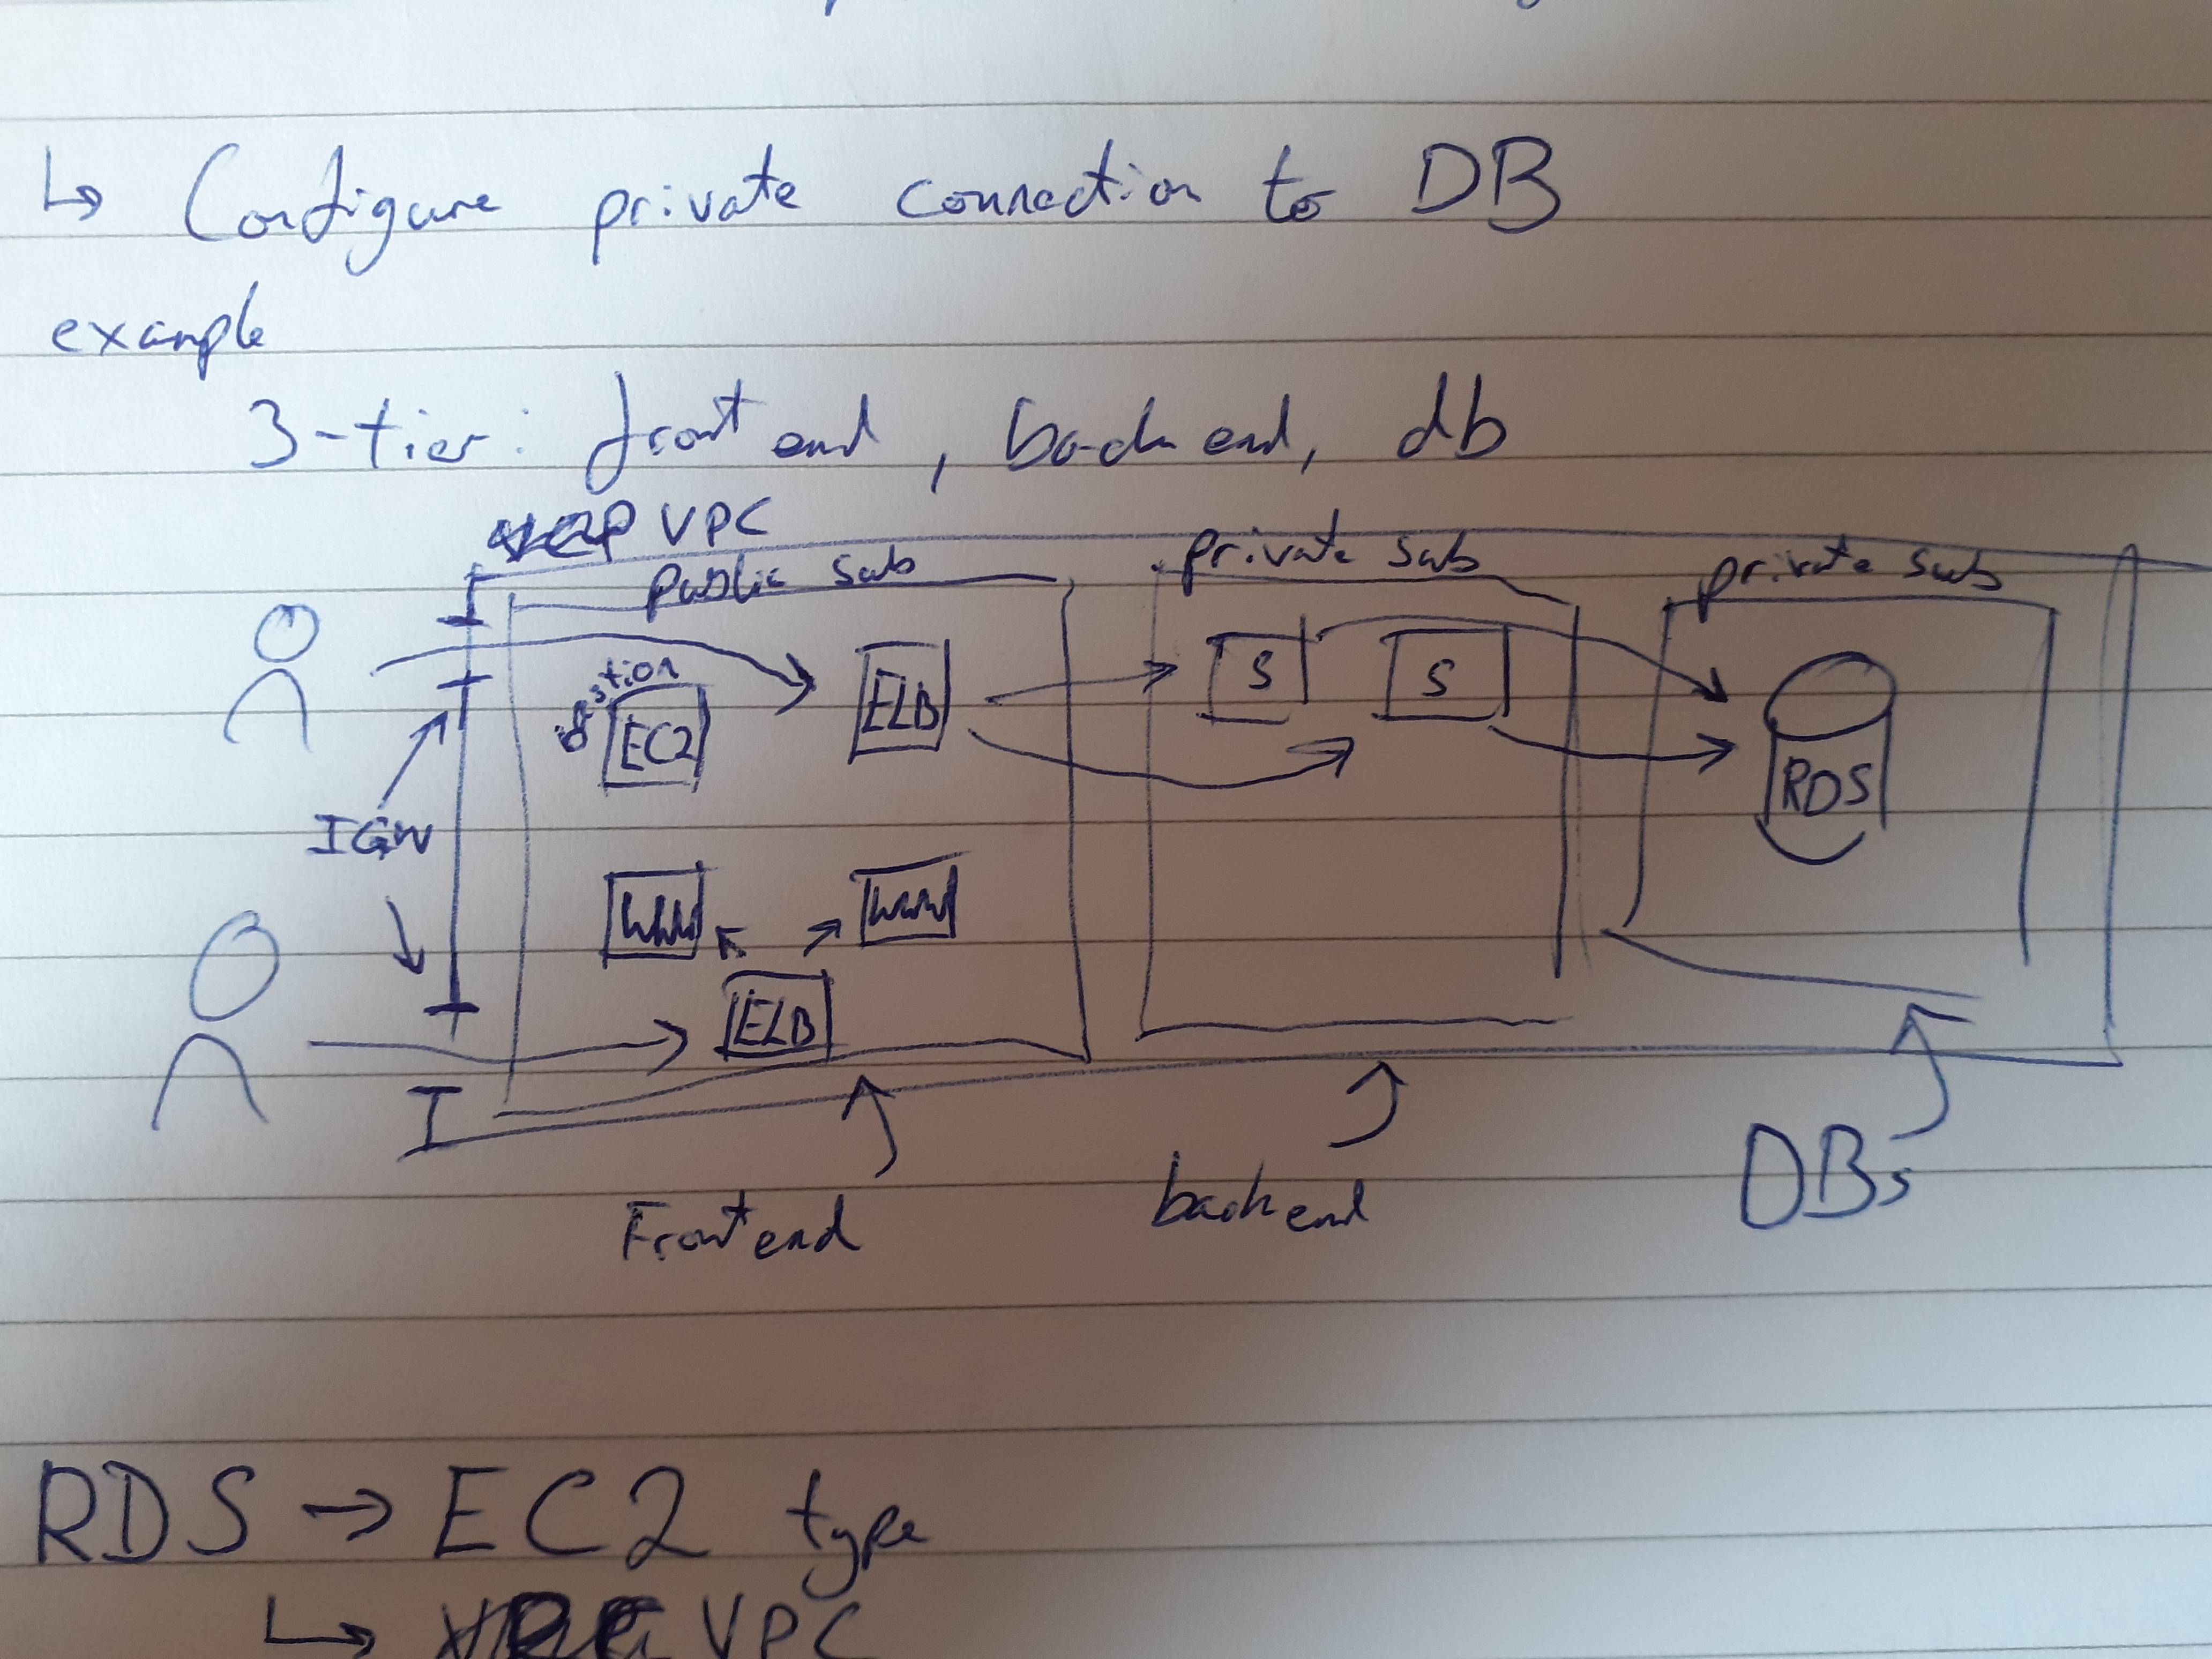 ↳ Configure private connection to DB
example
3-tier: frontend, backend, db
VPC
public sub
private sub
private sub
bastion
EC2
ELB
S
S
RDS
IGW
WWW
WWW
ELB
Frontend
backend
DBs
RDS → EC2 type
↳ VPC